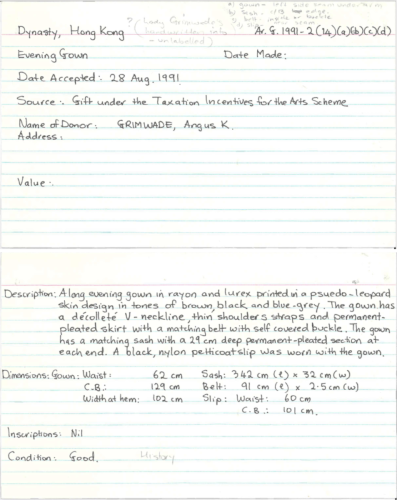 ? (Lady Grimwade)
Dynasty, Hong Kong
Ar. G. 1991-2 (14)(a)(b)(c)(d)
Evening Gown Date Made:
Date Accepted: 28 Aug. 1991.
Source: Gift under the Taxation Incentives for the Arts Scheme
Name of Donor: GRIMWADE, Angus K.
Address:
Value:
Description: A long evening gown in rayon and lurex printed in a psuedo-leopard
skin design in tones of brown, black and blue-grey. The gown has
a décolleté V-neckline, thin shoulders straps and permanent-
pleated skirt with a matching belt with self covered buckle. The gown
has a matching sash with a 29 cm deep permanent-pleated section at
each end. A black, nylon petticoat slip was worn with the gown.
Dimensions: Gown: Waist: 62 cm Sash: 342 cm (l) x 32 cm (w)
C.B.: 129 cm Belt: 91 cm (l) x 2.5 cm (w)
Width at hem: 102 cm Slip: Waist: 60 cm
C.B.: 101 cm.
Inscriptions: Nil
Condition: Good. History